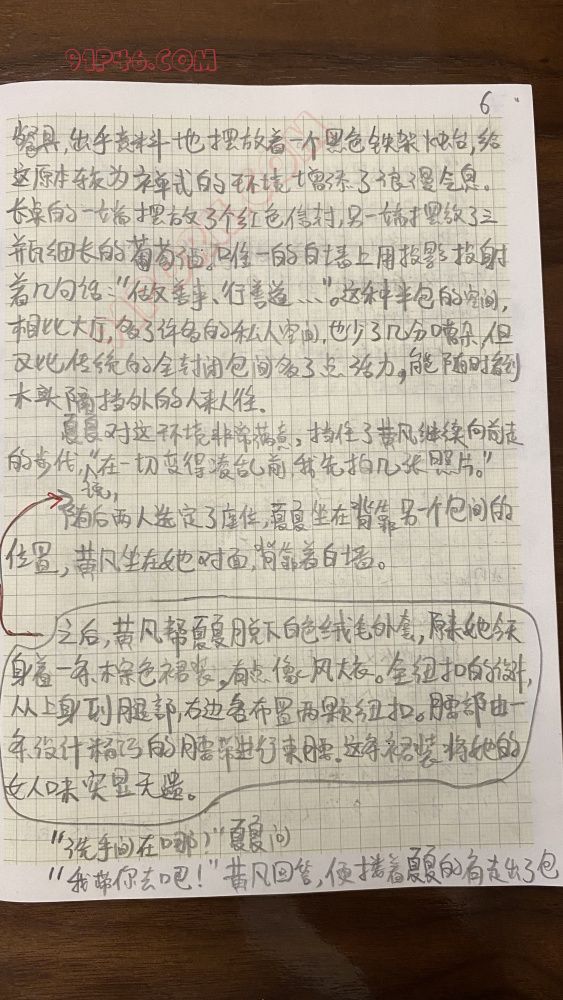 91P46.COM
6
餐具,出乎意料地摆放着一个黑色铁架烛台,给
这原本较为禅式的环境增添了浪漫气息。
长桌的一端摆放了个红色信封,另一端摆放了三
瓶细长的葡萄酒。唯一的白墙上用投影投射
着几句话:“做善事、行善道...”。这种半包的空间,
相比大厅,多了许多的私人空间,也少了几分嘈杂,但
又比传统的全封闭包间多了点活力,能随时看到
木头隔挡外的人来人往。
夏夏对这环境非常满意,挡住了黄凡继续向前走
的步伐,“在一切变得凌乱前,我先拍几张照片。”
随后两人选定了座位,夏夏坐在背靠另一个包间的
位置,黄凡坐在她对面,背靠着白墙。
之后,黄凡帮夏夏脱下白色绒毛外套,原来她今天
身着一条木棕色裙装。有点像风大衣。全纽扣的设计,
从上身到腿部,左右边各布置两颗纽扣。腰部由一
条设计精巧的腰带进行束腰。这条裙装将她的
女人味突显无遗。
“洗手间在哪?”夏夏问
“我带你去吧!”黄凡回答,便搂着夏夏的肩走出了包